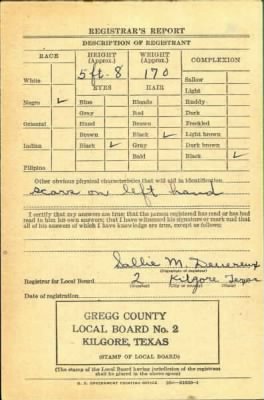 REGISTRAR'S REPORT
DESCRIPTION OF REGISTRANT
RACE HEIGHT (Approx.) WEIGHT (Approx.) COMPLEXION
5 ft - 8 170
White Sallow
EYES HAIR Light
Negro ✓ Blue Blonde Ruddy
Gray Red Dark
Oriental Hazel Brown Freckled
Brown Black ✓ Light brown
Indian Black ✓ Gray Dark brown
Bald Black ✓
Filipino
Other obvious physical characteristics that will aid in identification
scars on left hand
I certify that my answers are true; that the person registered has read or has had
read to him his own answers; that I have witnessed his signature or mark and that
all of his answers of which I have knowledge are true, except as follows:
Sallie M. Devereux
(Signature of registrar)
Registrar for Local Board 2 Kilgore Texas
(Number) (City or county) (State)
Date of registration
GREGG COUNTY
LOCAL BOARD No. 2
KILGORE, TEXAS
(STAMP OF LOCAL BOARD)
(The stamp of the Local Board having jurisdiction of the registrant
shall be placed in the above space)
U. S. GOVERNMENT PRINTING OFFICE